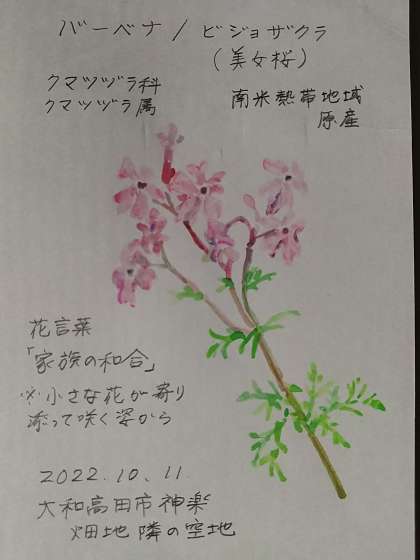 バーベナ / ビジョザクラ
(美女桜)
クマツヅラ科
クマツヅラ属
南米熱帯地域
原産
花言葉
「家族の和合」
※小さな花が寄り
添って咲く姿から
2022.10.11.
大和高田市神楽
畑地隣の空地